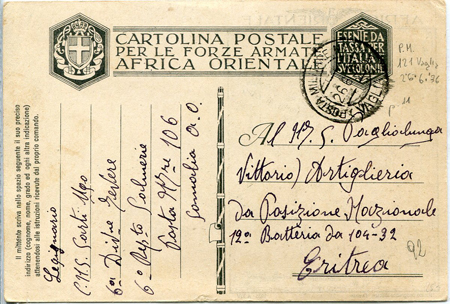 CARTOLINA POSTALE
PER LE FORZE ARMATE
AFRICA ORIENTALE
ESENTE DA
TASSA PER
L'ITALIA
SUE COLONIE
P.M.
121
26.6.36
POSTA MILITARE
Il mittente scriva nello spazio seguente il suo preciso
indirizzo (cognome, nome, grado ed ogni altra indicazione)
attenendosi alle istruzioni ricevute dal proprio comando.
Legionario
Sarti Ugo
6ª Divne Tevere
6º Repto Salmerie
Posta Mre 106
Somalia A.O.
Al
Vittorio) Artiglieria
da Posizione Nazionale
12a Batteria da 104-32
Eritrea
92